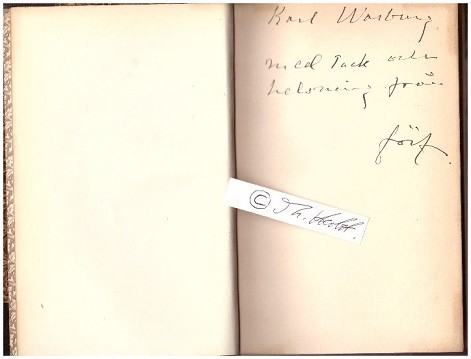 Karl Warburg
med Tack och
helsning från
förf.
© Th. Herbst.